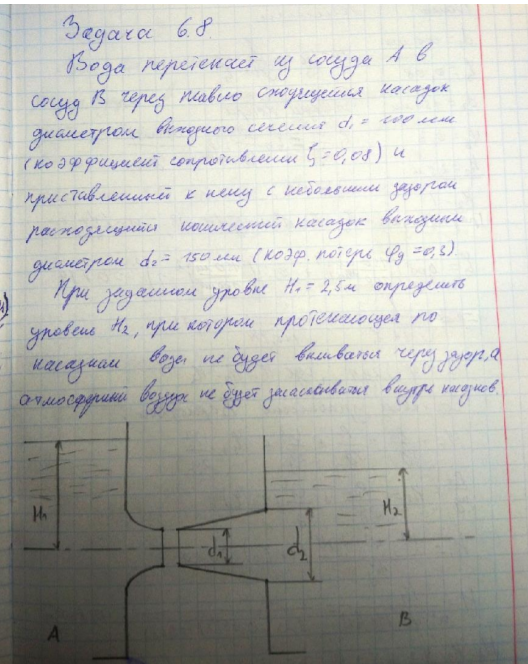 Задача 6.8.
Вода перетекает из сосуда А в
сосуд В через плавно сходящейся насадок
диаметром выходного сечения d₁ = 100 мм
(коэффициент сопротивления ζ = 0,08) и
приставленный к нему с небольшим зазором
расходящийся конический насадок выходным
диаметром d₂ = 150 мм (коэф. потерь φg = 0,3).
При заданном уровне H₁ = 2,5 м определить
уровень H₂, при котором протекающая по
насадкам вода не будет выливаться через зазор, а
атмосферный воздух не будет засасываться внутрь насадков.
H₁
d₁
d₂
H₂
А
В